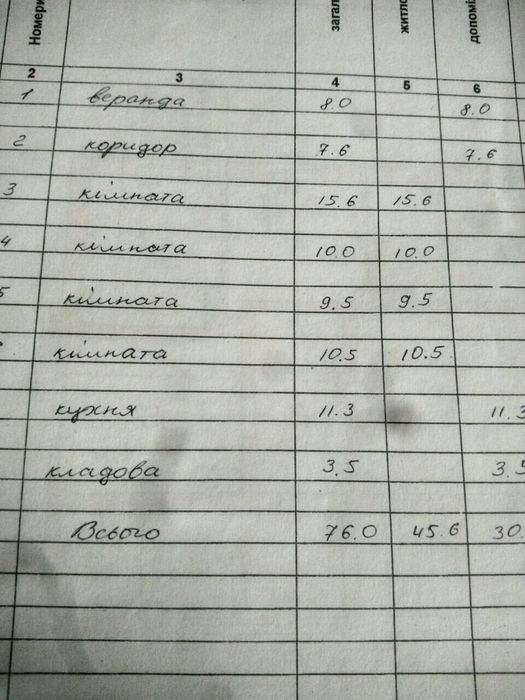 Номери загал житло допомі
2 3 4 5 6
1 веранда 8.0 8.0
2 коридор 7.6 7.6
3 кімната 15.6 15.6
4 кімната 10.0 10.0
5 кімната 9.5 9.5
кімната 10.5 10.5
кухня 11.3 11.3
кладова 3.5 3.5
Всього 76.0 45.6 30.